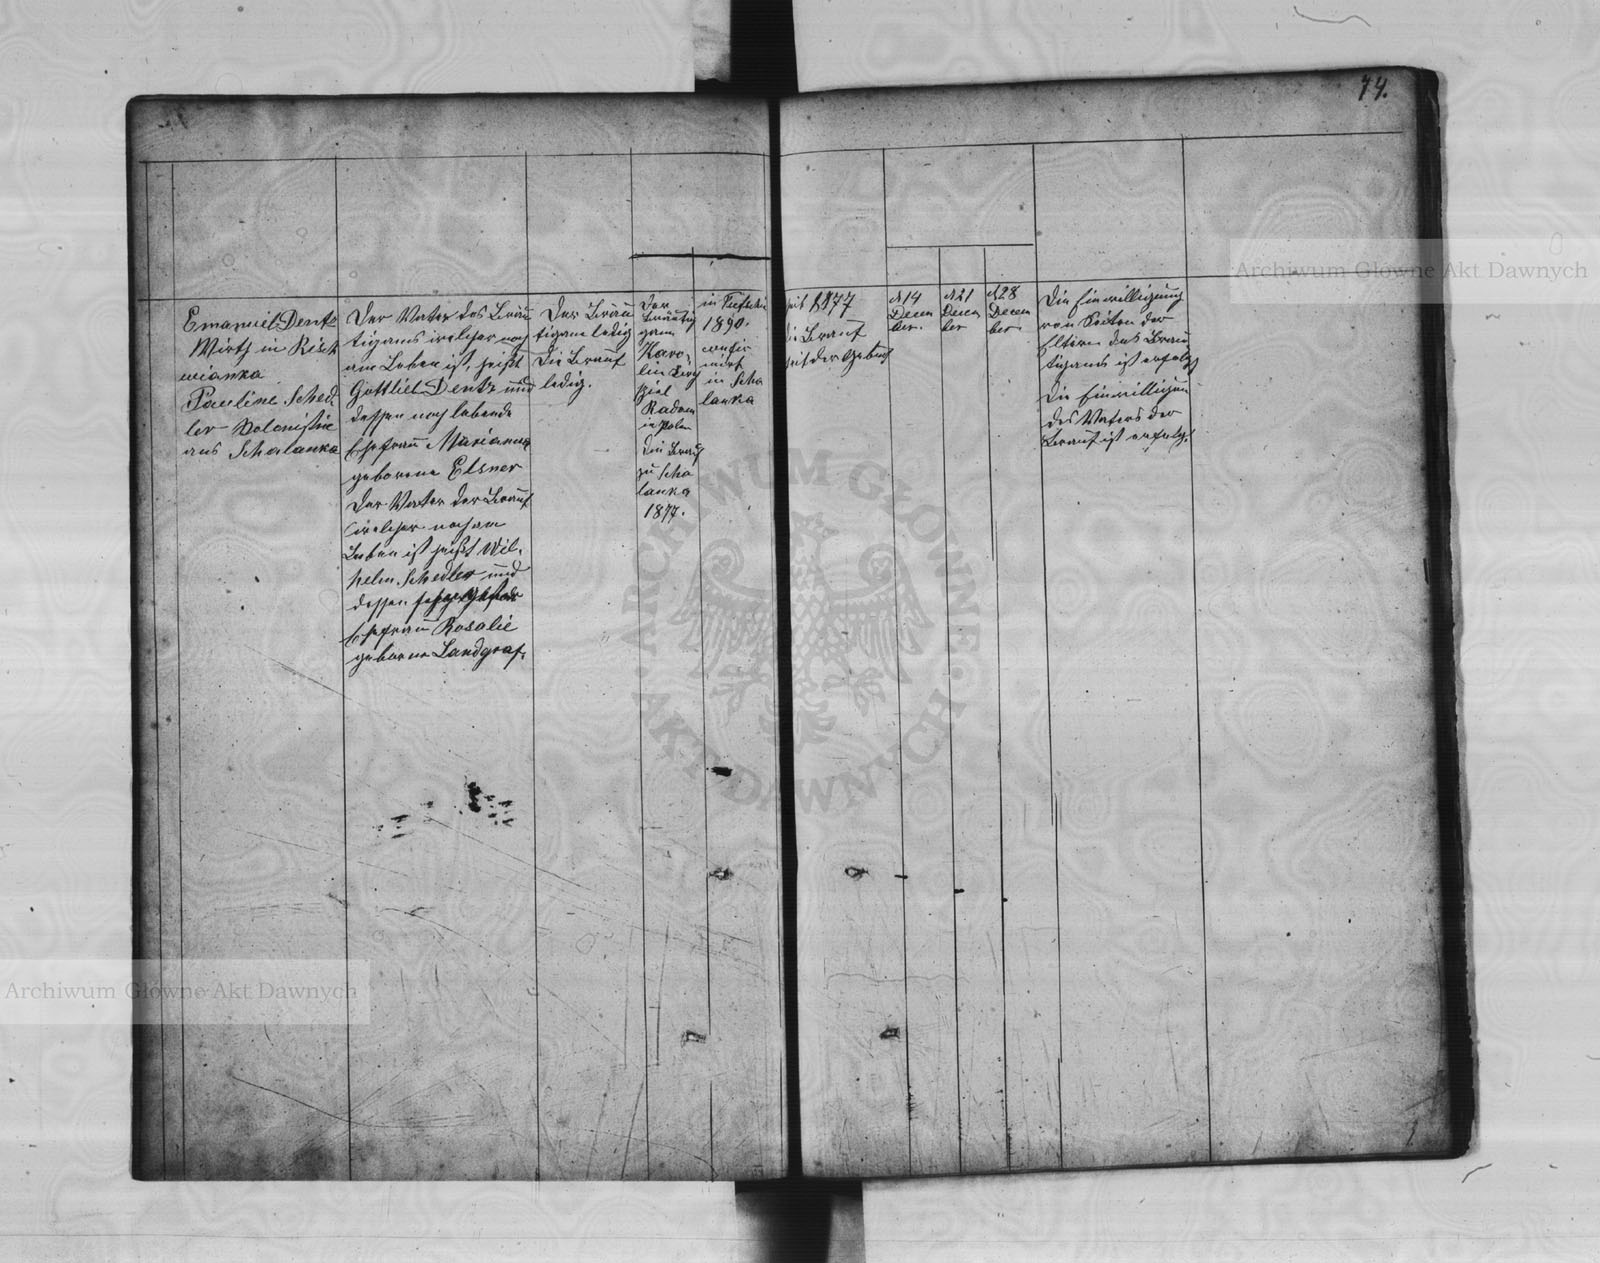 74.
Emanuel Dentz
Wirth in Risch
wianka
Pauline Sched
ler Kolonistin
aus Scholanka
Der Vater des Bräu
tigams welcher noch
am Leben ist, heißt
Gottlieb Dentz und
dessen noch lebende
Ehefrau Marianna
geborene Elsner
Der Vater der Braut
welcher noch am
Leben ist heißt Wil,
helm Schedler und
dessen
Ehefrau Rosalie
geborne Landgraf.
Der Bräu
tigam ledig
Die Braut
ledig.
Der
Bräuti
gam
Karo,
lin
Radom
in Polen
Die Braut
zu Scho
lanka
1877.
in
1890.
confir
mirt
in Scho
lanka
seit 1877
die Braut
seit der Geburt
d 14
Decem
ber.
d 21
Decem
ber
d 28
Decem
ber.
Die Einwilligung
von Seiten der
Eltern des Bräu
tigams ist erfolgt
Die Einwilligung
des Vaters der
Braut ist erfolgt.
Archiwum Główne Akt Dawnych
ARCHIWUM GŁÓWNE
AKT DAWNYCH
Archiwum Główne Akt Dawnych